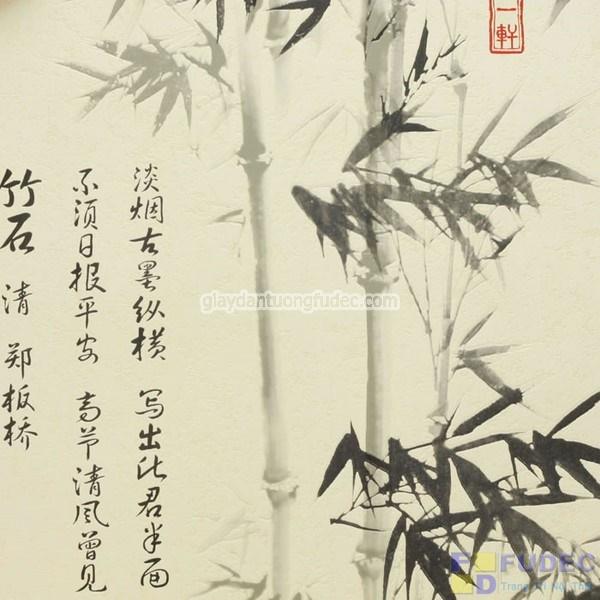 一軒
淡烟古墨纵横 写出此君半面
不须日报平安 高节清风曾见
竹石 清 郑板桥
giaydantuongfudec.com
FUDEC
FD
Trang Trí Nội